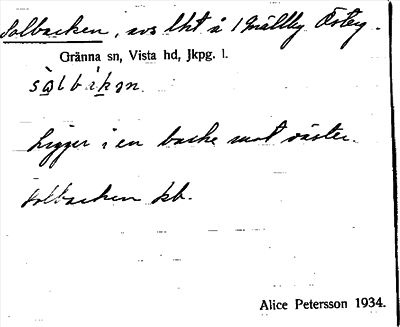 Solbacken, avs lht å 1 Mällby Österg.
Gränna sn, Vista hd, Jkpg. l.
Ligger i en backe mot väster.
Solbacken kb.
Alice Petersson 1934.